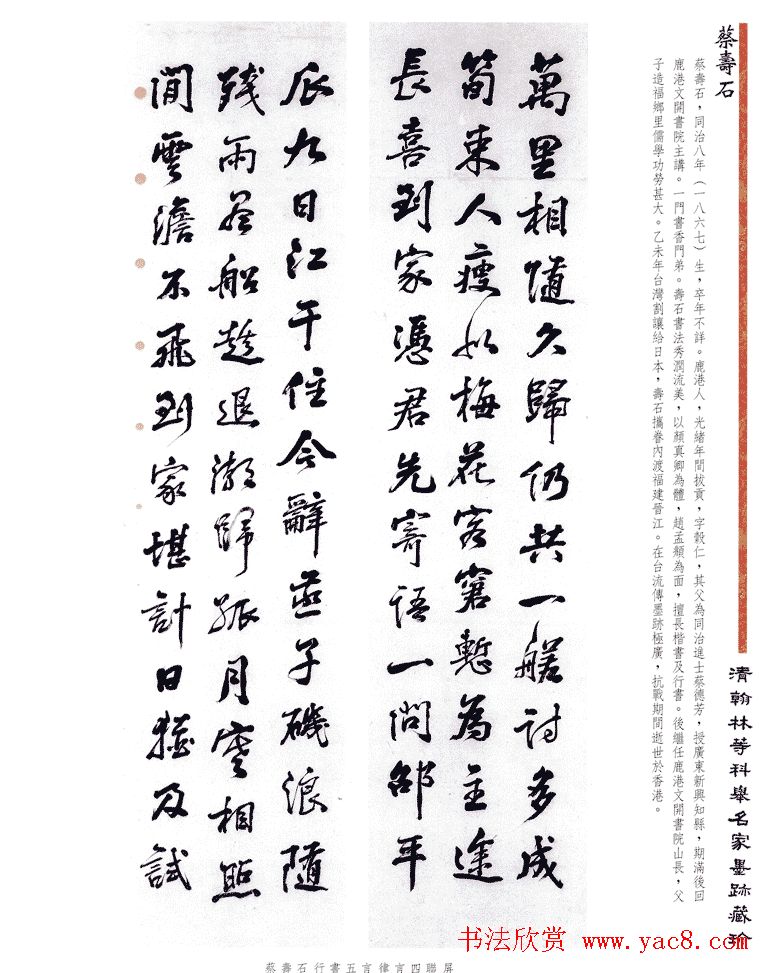 清翰林等科舉名家墨跡藏珍
蔡壽石
蔡壽石,同治八年(一八六七)生,卒年不詳。鹿港人,光緒年間拔貢,字穀仁,其父為同治進士蔡德芳,授廣東新興知縣,期滿後回
鹿港文開書院主講。一門書香門弟。壽石書法秀潤流美,以顏真卿為體,趙孟頫為面,擅長楷書及行書。後繼任鹿港文開書院山長,父
子造福鄉里儒學功勞甚大。乙未年台灣割讓給日本,壽石攜眷內渡福建晉江。在台流傳墨跡極廣,抗戰期間逝世於香港。
萬里相隨久歸仍共一艖詩多成
筍束人瘦似梅花客窘慙為主途
長喜到家憑君先寄語一問邵平
瓜九日江干住今辭燕子磯浪隨
殘雨船趁退潮歸孤月寒相照
閒雲澹不飛到家堪計日猶及試
蔡壽石行書五言律言四聯屏
书法欣赏 www.yac8.com